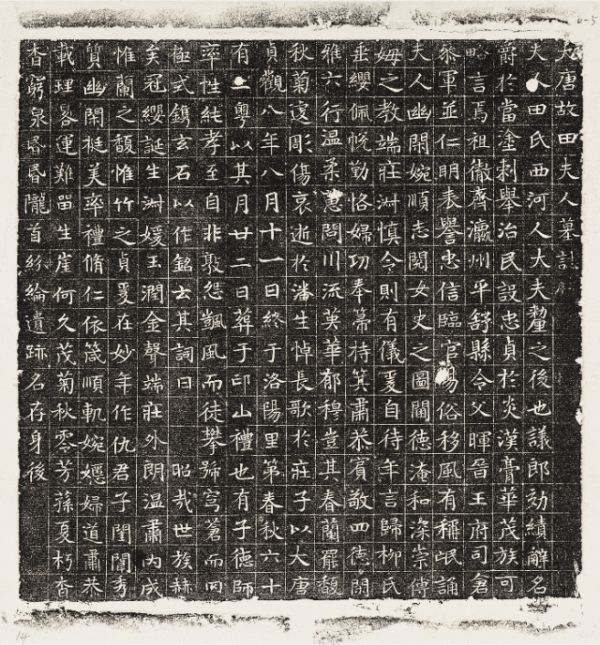 大唐故田夫人墓誌
夫人田氏西河人大夫犛之後也議郎効績辭名
爵於當塗刺舉治民設忠貞於炎漢膏華茂族可
略言焉祖徹齊瀛州平舒縣令父暉晉王府司倉
叅軍並仁明表譽忠信臨官易俗移風有稱氓誦
夫人幽閑婉順志閱女史之圖閫德淹和深崇傅
姆之教端莊淑慎令則有儀爰自待年言歸柳氏
垂纓佩帨勤恪婦功奉箒持箕肅恭賓敬四德閑
雍六行温柔蕙問川流英華郁穆豈其春蘭罷馥
秋菊遽彫傷哀逝於潘生悼長歌於莊子以大唐
貞觀八年八月十一日終于洛陽里第春秋六十
有二粵以其月廿二日葬于邙山禮也有子德師
率性純孝至自非毀怨颽風而徒攀號穹蒼而罔
極式鐫玄石以作銘云其詞曰 昭哉世族赫
矣冠纓誕生淑媛玉潤金聲端莊外朗温肅内成
惟蘭之馥惟竹之貞爰在妙年作仇君子閨闈秀
質幽閑挺美率禮脩仁依箴順軌婉嫕婦道肅恭
載理晷運難留生崖何久茂菊秋零芳蓀夏朽杳
杳窮泉昏昏隴首紛綸遺跡名存身後
14